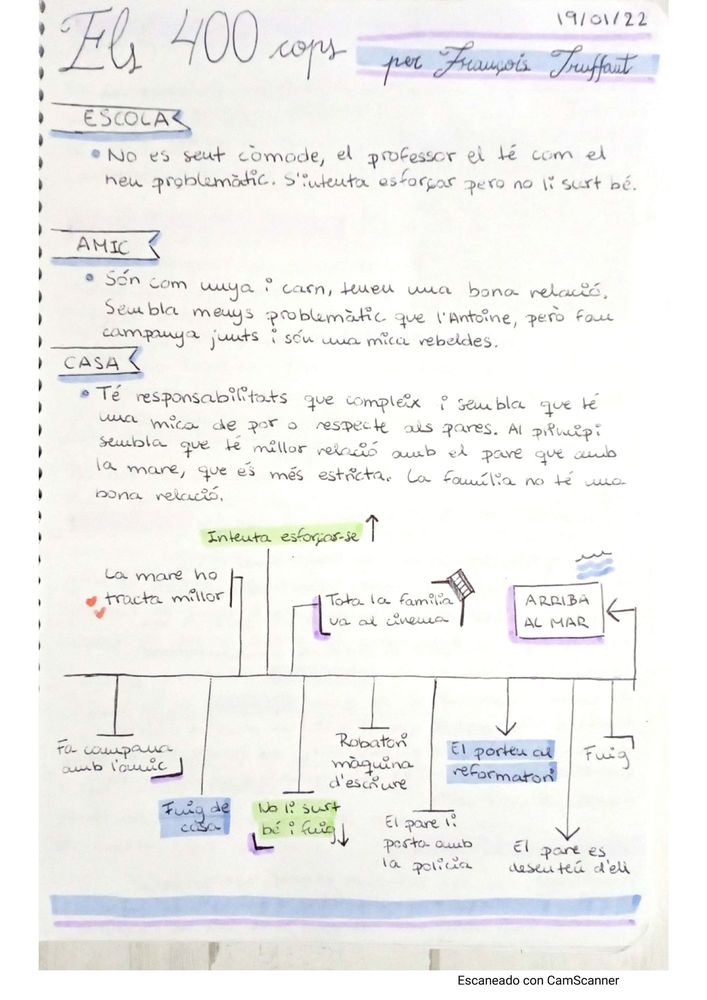 19/01/22
Els 400 cops
per François Truffaut
ESCOLA
• No es sent còmode, el professor el té com el
neu problemàtic. S'intenta esforçar pero no li surt bé.
AMIC
• Són com unya i carn, teneu una bona relació.
Sembla menys problemàtic que l'Antoine, però fan
campanya junts i són una mica rebeldes.
CASA
• Té responsabilitats que compleix i sembla que té
una mica de por o respecte als pares. Al principi
sembla que té millor relació amb el pare que amb
la mare, que és més estricta. La família no té una
bona relació.
Intenta esforçar-se
La mare ho
tracta millor
Tota la familia
va al cinema
ARRIBA
AL MAR
Fa campana
amb l'amic
Fuig de
casa
No li surt
bé i fuig
Robatori
màquina
d'escriure
El pare li
porta amb
la policia
El porten al
reformatori
El pare es
desentén d'ell
Fuig
Escaneado con CamScanner